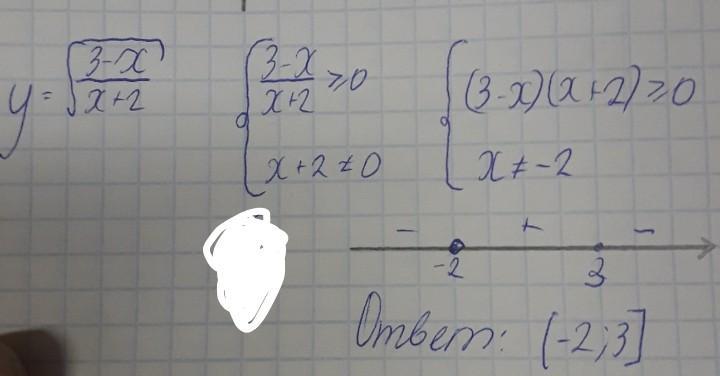 y = √((3-x)/(x+2))
{ (3-x)/(x+2) ≥ 0
x+2 ≠ 0
{ (3-x)(x+2) ≥ 0
x ≠ -2
- + -
-2 3
Ответ: (-2; 3]